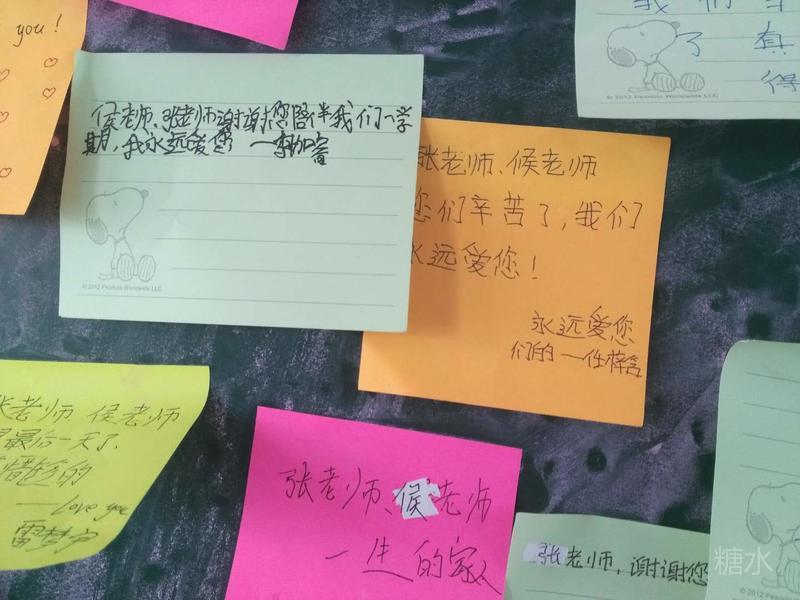 you!
我们
了 真
得
© 2012 Peanuts Worldwide LLC
侯老师、张老师谢谢您陪伴我们一学
期,我永远爱您
© 2012 Peanuts Worldwide LLC
张老师、候老师
您们辛苦了,我们
永远爱您!
永远爱您
们的
张老师 侯老师
最后一天了
的
——Love you
张老师、侯老师
一生的家人
张老师,谢谢您
糖水